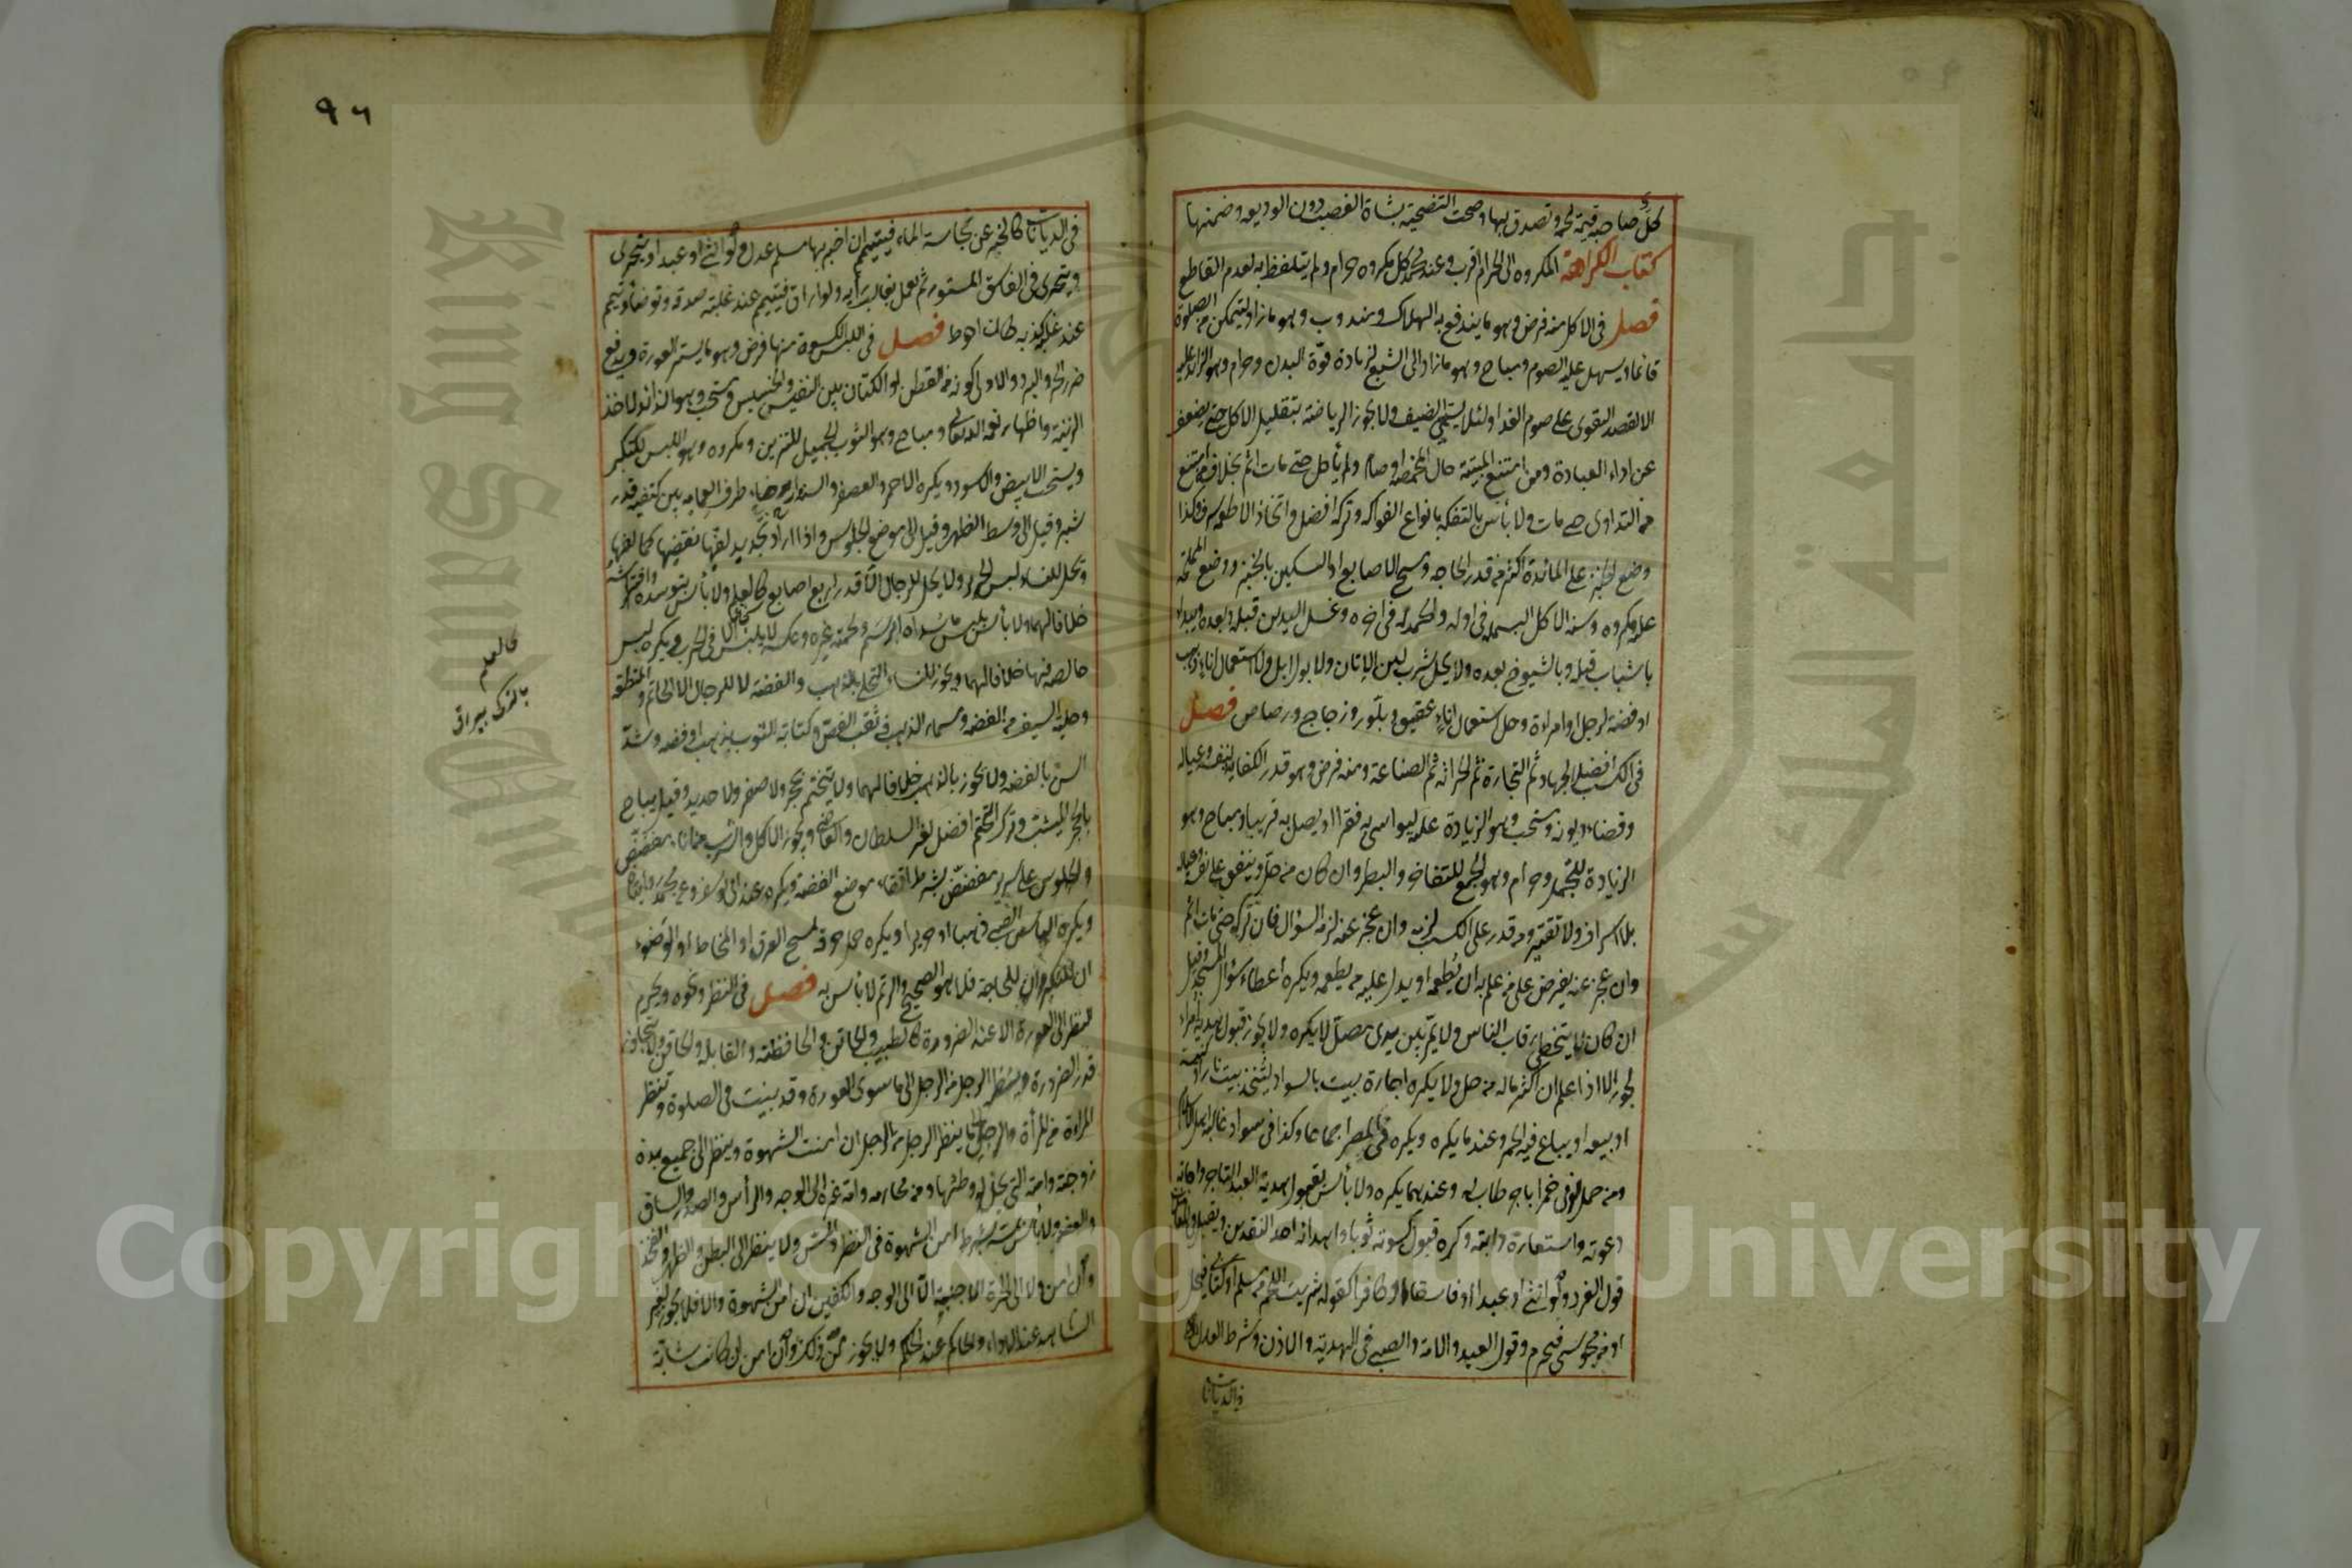 كل صاحبه قيمة لحمه وتصدق بها وصحت التضحية بشاة الغصب دون الوديعه وضمنها
كتاب الكراهة المكروه الى الحرام اقرب وعند محمد كل مكروه حرام ولم يتلفظ به لعدم القاطع
فصل فى الاكل منه فرض وهو ما يندفع به الهلاك ومندوب وهو ما زاد ليتمكن من الصلوة
قائما ويسهل عليه الصوم ومباح وهو ما زاد الى الشبع لزيادة قوة البدن وحرام وهو الزائد عليه
الا لقصد التقوى على صوم الغد او لئلا يستحي الضيف ولا يجوز الرياضة بتقليل الاكل حتى يضعف
عن اداء العبادة ومن امتنع الميتة حال المخمصة او صام ولم يأكل حتى مات اثم بخلاف من امتنع
من التداوى حتى مات ولا بأس بالتفكه بانواع الفواكه وتركه افضل واتخاذ الاطعمة سرف وكذا
وضع الخبز على المائدة اكثر من قدر الحاجه ومسح الاصابع او السكين بالخبز ووضع المملحة
عليه مكروه وسنة الاكل البسملة فى اوله والحمدلة فى اخره وغسل اليدين قبله وبعده ويبداء
بالشباب قبله وبالشيوخ بعده ولا يحل شرب لبن الاتان ولا بول ابل ولا استعمال اناء ذهب
او فضة لرجل او امراءة وحل استعمال اناء عقيق وبلور وزجاج ورصاص فصل
فى الكسب افضله الجهاد ثم التجارة ثم الحراثة ثم الصناعة ومنه فرض وهو قدر الكفاية لنفسه وعياله
وقضاء ديونه ومستحب وهو الزيادة عليه ليواسى به فقيرا او يصل به قريبا ومباح وهو
الزيادة للتجمل وحرام وهو الجمع للتفاخر والبطر وان كان من حل وينفق على نفسه وعياله
بلا اسراف ولا تقتير ومن قدر على الكسب لزمه وان عجز عنه لزمه السؤال فان تركه حتى مات اثم
وان عجز عنه يفرض على من علم به ان يطعمه او يدل عليه من يطعمه ويكره اعطاء سؤال المسجد وقيل
ان كان لا يتخطى رقاب الناس ولا يمر بين يدى مصل لا يكره ولا يجوز قبول هدية امراء
الجور الا اذا علم ان اكثر ماله من حل ولا يكره اجارة بيت بالسواد ليتخذ بيت نار او كنيسة
او بيعه او يباع فيه الخمر وعندهما يكره ويكره فى المصر اجماعا وكذا فى سواد غالبه اهل الاسلام
ومن حمل لذمى خمرا باجر طاب له وعندهما يكره ولا بأس بقبول هدية العبد التاجر واجابة
دعوته واستعارة دابته وكره قبول كسوته ثوبا واهدائه احد النقدين ويقبل فى المعاملات
قول الفرد ولو انثى او عبدا او فاسقا او كافرا كقوله شريت اللحم من مسلم او كتابى فيحل
او من مجوسى فيحرم وقول العبد والامة والصبى فى الهدية والاذن وشرط العدل
فى الديانات
٩٦
فى الديانات كالخبر عن نجاسة الماء فيتيمم ان اخبر بها مسلم عدل ولو انثى او عبدا ويتحرى
ويتحرى فى الفاسق المستور ثم يعمل بغالب رأيه ولو اراق فيتيمم عند غلبة صدقه وتوضأ وتيمم
عند غلبة كذبه كان احوط فصل فى اللبس الكسوة منها فرض وهو ما يستر العورة ويدفع
ضرر الحر والبرد والاولى كونه من القطن او الكتان بين النفيس والخسيس ومستحب وهو الزائد لاخذ
الزينة واظهار نعمة الله تعالى ومباح وهو الثوب الجميل للتزين ومكروه وهو اللبس للتكبر
ويستحب الابيض والاسود ويكره الاحمر والمعصفر والسنة ارخاء طرف العمامه بين كتفيه قدر
شبر وقيل الى وسط الظهر وقيل الى موضع الجلوس واذا اراد تجديد لفها نقضها كما لفها
ويحل للنساء لبس الحرير ولا يحل للرجال الا قدر اربع اصابع كالعلم ولا بأس بتوسده وافتراشه
خلافا لهما ولا بأس بلبس ما سداه ابريسم ولحمته غيره وعكسه لا يلبس الا فى الحرب ويكره لبس
خالصه فيها خلافا لهما ويجوز للنساء التحلى بالذهب والفضة لا للرجال الا الخاتم والمنطقة
وحلية السيف من الفضه ومسمار الذهب فى ثقب الفص وكتابة الثوب بذهب او فضه وشد
السن بالفضه ولا يجوز بالذهب خلافا لهما ولا يتختم بحجر ولا صفر ولا حديد وقيل يباح
بالحجر اليشب وترك التختم افضل لغير السلطان والقاضى ويجوز الاكل والشرب من اناء مفضض
والجلوس على سرير مفضض بشرط اتقاء موضع الفضة ويكره عند ابى يوسف وعن محمد روايتان
ويكره الباس الصبى ذهبا او حريرا ويكره حمل خرقة لمسح العرق او المخاط او الوضوء
ان للتكبر وان للحاجة فلا هو الصحيح والرتم لا بأس به فصل فى النظر ونحوه ويحرم
النظر الى العورة الا عند الضرورة كالطبيب والخاتن والخافضة والقابلة والحاقن ولا يتجاوز
قدر الضرورة وينظر الرجل من الرجل الى ما سوى العورة وقد بينت فى الصلوة وتنظر
المراءة من المرأة والرجل الى ما ينظر الرجل من الرجل ان امنت الشهوة وينظر الى جميع بدن
زوجته وامته التى يحل له وطئها ومن محارمه وامة غيره الى الوجه والرأس والصدر والساق
والعضد ولا بأس بمسه بشرط امن الشهوة فى النظر والمس ولا ينظر الى البطن والظهر والفخذ
وان امن ولا الى الحرة الاجنبية الا الى الوجه والكفين ان امن الشهوة والا فلا يجوز لغير
الشاهد عند الاداء والحاكم عند الحكم ولا يجوز مس ذلك وان امن ان كانت شابة
كالعلم
بالترك بيراق
Copyright © King Saud University
King Saud University